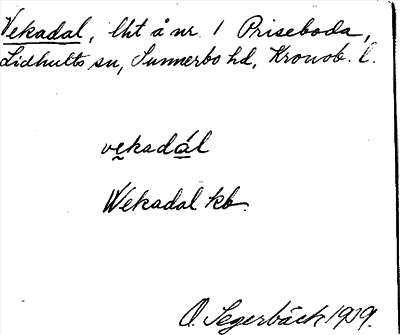 Vekadal, lht å nr 1 Priseboda,
Lidhults sn, Sunnerbo hd, Kronob. l.
vekadál
Wekadal kb.
O. Segerbäck 1909.